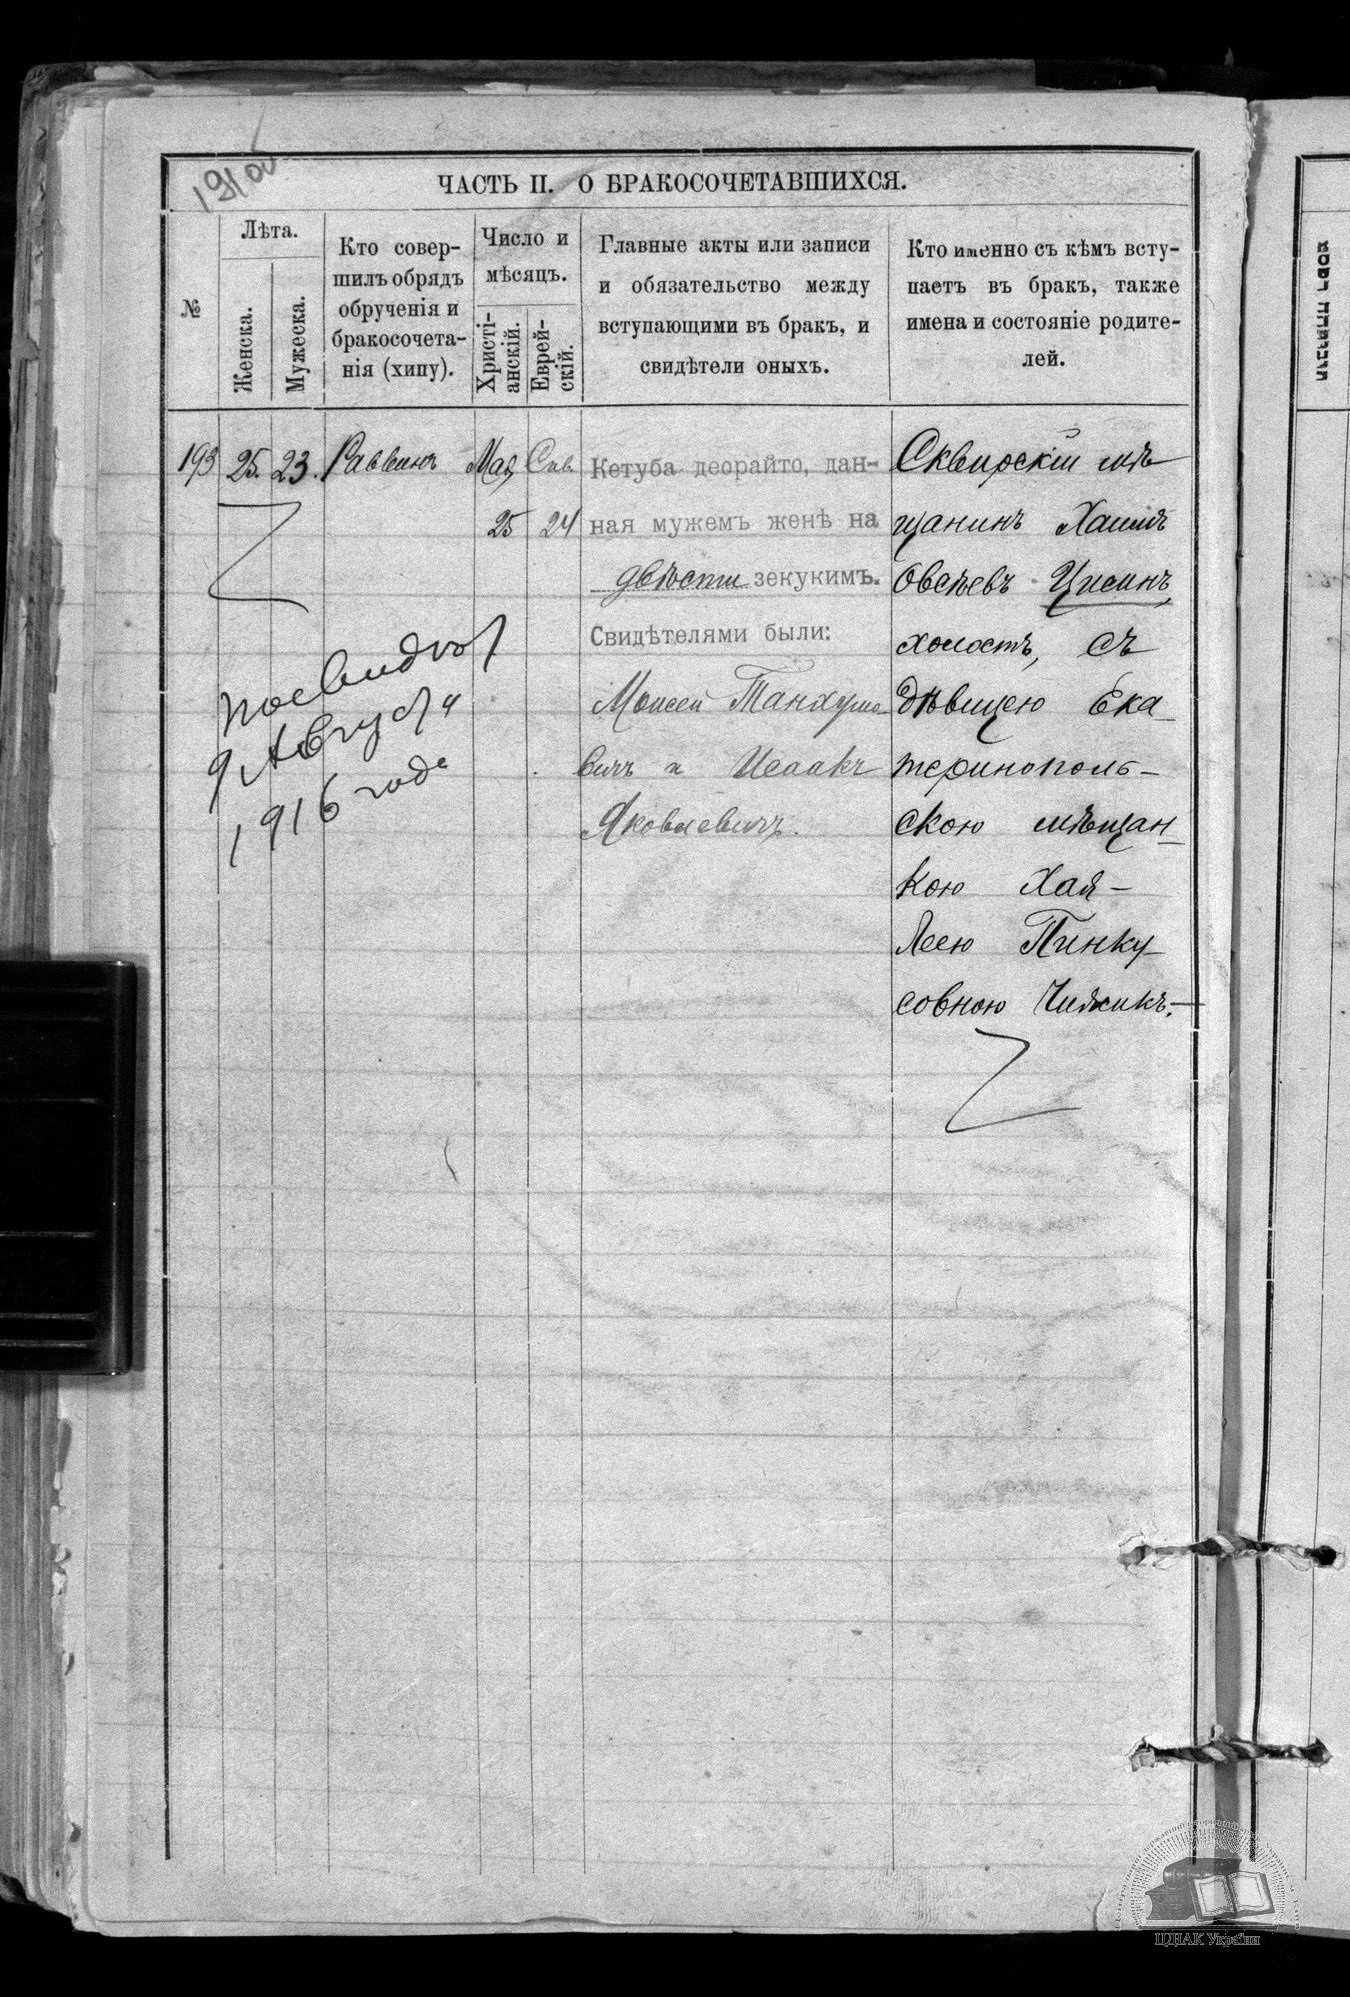 ЧАСТЬ II. О БРАКОСОЧЕТАВШИХСЯ.
№
Лѣта.
Женска.
Мужеска.
Кто совер-
шилъ обрядъ
обрученія и
бракосочета-
нія (хипу).
Число и
мѣсяцъ.
Христі-
анскій.
Еврей-
скій.
Главные акты или записи
и обязательство между
вступающими въ бракъ, и
свидѣтели оныхъ.
Кто именно съ кѣмъ всту-
паетъ въ бракъ, также
имена и состояніе родите-
лей.
193 25. 23. Раввинъ Мая Сив.
25 24
Кетуба деорайто, дан-
ная мужемъ женѣ на
двѣсти зекукимъ.
Свидѣтелями были:
Моисей Танхумо-
вичъ и Исаакъ
Яковлевичъ.
Сквирскій мѣ
щанинъ Хаимъ
Овсѣевъ Цисинъ,
холостъ, съ
дѣвицею Ека-
теринополь-
скою мѣщан-
кою Хая-
Леею Пинку-
совною Чижикъ.
9 Августа
1916 года
ЦДІАК України